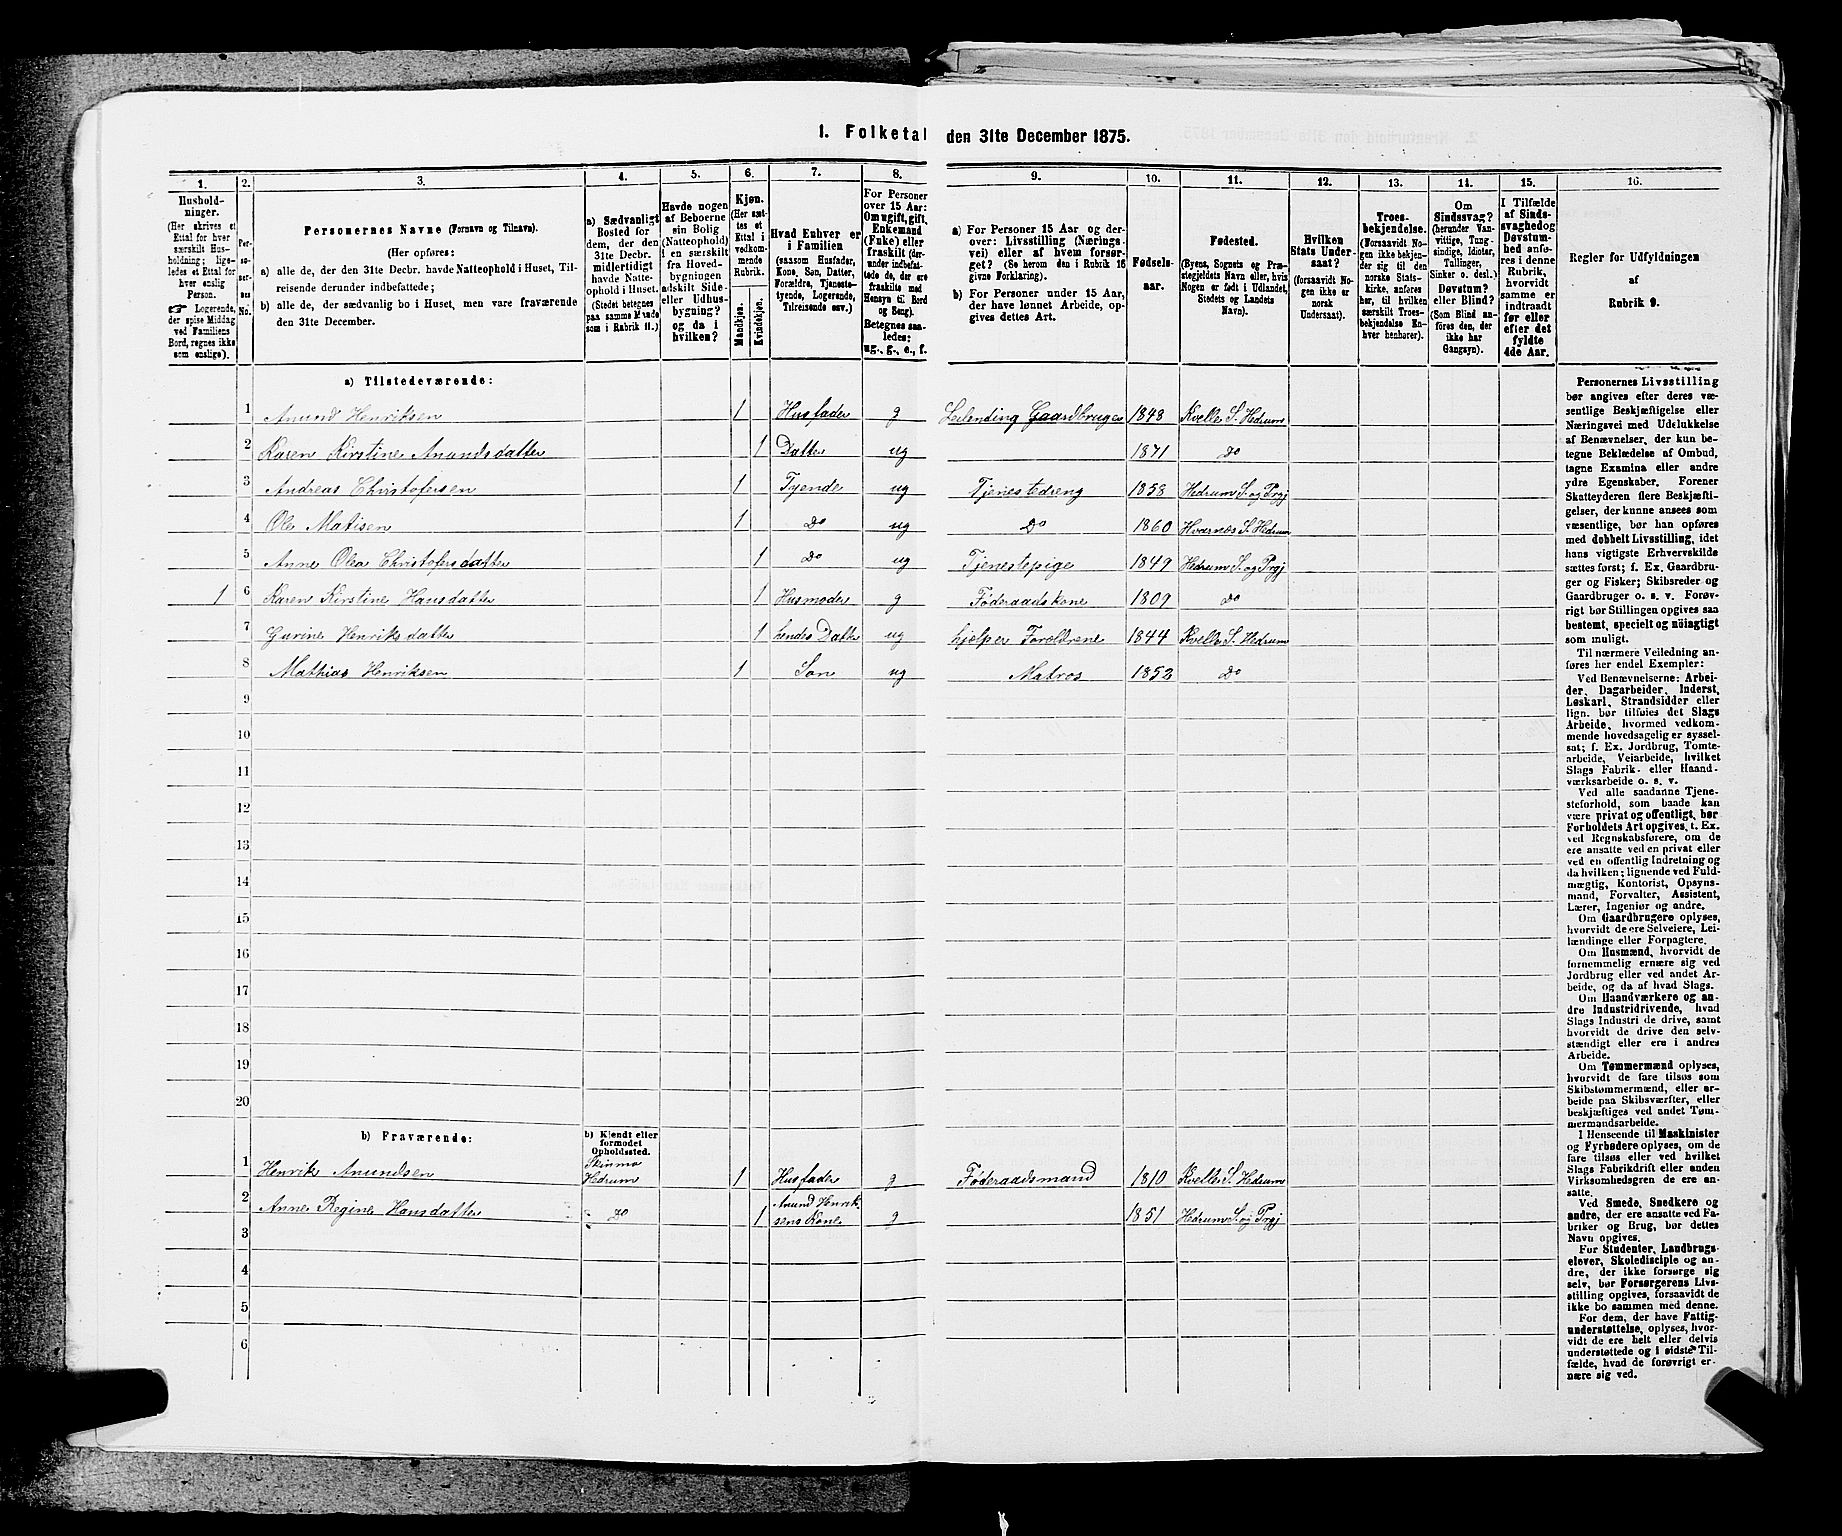 1. Folketal den 31te December 1875.
1.
Hushold-
ninger.
(Her skrives et
Ettal for hver
særskilt Hus-
holdning; lige-
ledes et Ettal for
hver enslig
Person.
Logerende,
der spise Middag
ved Familiens
Bord, regnes ikke
som enslige).
2.
Per-
No.
3.
Personernes Navne (Fornavn og Tilnavn).
(Her opføres:
a) alle de, der den 31te Decbr. havde Natteophold i Huset, Til-
reisende derunder indbefattede;
b) alle de, der sædvanlig bo i Huset, men vare fraværende
den 31te December.
4.
a) Sædvanligt
Bosted for
dem, der den
31te Decbr.
midlertidigt
havde Natte-
ophold i Huset.
(Stedet betegnes
paa samme Maade
som i Rubrik 11.)
5.
Havde nogen
af Beboerne
sin Bolig
(Natteophold)
i en særskilt
fra Hoved-
bygningen
adskilt Side-
eller Udhus-
bygning?
og da i
hvilken?
6.
Kjøn.
(Her sæt-
tes et
Ettal i
vedkom-
mende
Rubrik.
Mandkjøn.
Kvindekjøn.
7.
Hvad Enhver er
i Familien
(saasom Husfader,
Kone, Søn, Datter,
Forældre, Tjeneste-
tyende, Logerende,
Tilreisende osv.)
8.
For Personer
over 15 Aar:
Om ugift, gift,
Enkemand
(Enke) eller
fraskilt (der-
under indbefat-
tede de, der ere
fraskilte med
Hensyn til Bord
og Seng).
Betegnes saa-
ledes:
ug., g., e., f.
9.
a) For Personer 15 Aar og der-
over: Livsstilling (Nærings-
vei) eller af hvem forsør-
get? (Se herom den i Rubrik 16
givne Forklaring).
b) For Personer under 15 Aar,
der have lønnet Arbeide, op-
gives dettes Art.
10.
Fødsels-
aar.
11.
Fødested.
(Byens, Sognets og Præ-
stegjeldets Navn eller, hvis
Nogen er født i Udlandet,
Stedets og Landets
Navn).
12.
Hvilken
Stats Under-
saat?
(forsaavidt No-
gen ikke er
norsk
Undersaat).
13.
Troes-
bekjendelse.
(Forsaavidt No-
gen ikke bekjen-
der sig til den
norske Stats-
kirke, anføres
her, til hvilken
særskilt Troes-
bekjendelse En-
hver henhører).
14.
Om
Sindssvag?
(herunder Van-
vittige, Tung-
sindige, Idioter,
Tullinger,
Sinker o. desl.)
Døvstum?
eller Blind?
(Som Blind an-
føres den, der
ikke har
Gangsyn).
15.
I Tilfælde
af Sinds-
svaghed og
Døvstum-
hed anfø-
res i denne
Rubrik,
hvorvidt
samme er
indtraadt
før eller
efter det
fyldte
4de Aar.
16.
Regler for Udfyldningen
af
Rubrik 9.
a) Tilstedeværende:
1 Anund Henriksen 1 Husfader g Leilending Gaardbruger 1848 Kvelle S. Hedrum
2 Karen Kirstine Anundsdatter 1 Datter ug 1871 Do
3 Andreas Christofersen 1 Tyende ug Tjenestedreng 1858 Hedrum S. og Prgj
4 Ole Matisen 1 Do ug Do 1860 Hvarnes S. Hedrum
5 Anne Olea Christofersdatter 1 Do ug Tjenestepige 1849 Hedrum S. og Prgj
1 6 Karen Kirstine Hansdatter 1 Husmoder g Føderaadskone 1809 Do
7 Gurine Henriksdatter 1 hendes Datter ug hjelper Foreldrene 1844 Kvelle S. Hedrum
8 Mathias Henriksen 1 Søn ug Matros 1852 Do
9
10
11
12
13
14
15
16
17
18
19
20
b) Fraværende:
b) Kjendt eller
formodet
Opholdssted.
1 Henrik Anundsen Skinmo Hedrum 1 Husfader g Føderaadsmand 1810 Kvelle S. Hedrum
2 Anne Regine Hansdatter Do 1 Anund Henrik-
sens Kone g 1851 Hedrum S. og Prgj
3
4
5
6
Personernes Livsstilling
bør angives efter deres væ-
sentlige Beskjæftigelse eller
Næringsvei med Udelukkelse
af Benævnelser, der kun be-
tegne Beklædelse af Ombud,
tagne Examina eller andre
ydre Egenskaber. Forener
Skatteyderen flere Beskjæfti-
gelser, der kunne ansees som
væsentlige, bør han opføres
med dobbelt Livsstilling, idet
hans vigtigste Erhvervskilde
sættes først; f. Ex. Gaardbru-
ger og Fisker; Skibsreder og
Gaardbruger o. s. v. Forøv-
rigt bør Stillingen opgives saa
bestemt, specielt og nöiagtigt
som muligt.
Til nærmere Veiledning an-
føres her endel Exempler:
Ved Benævnelserne: Arbei-
der, Dagarbeider, Inderst,
Løskarl, Strandsidder eller
lign. bør tilføies det Slags
Arbeide, hvormed vedkom-
mende hovedsagelig er syssel-
sat; f. Ex. Jordbrug, Tomte-
arbeide, Veiarbeide, hvilket
Slags Fabrik- eller Haand-
værksarbeide o. s. v.
Ved alle saadanne Tjene-
steforhold, som baade kan
være privat og offentligt, bør
Forholdets Art opgives, t. Ex.
ved Regnskabsførere, om de
ere ansatte ved en privat eller
ved en offentlig Indretning og
da hvilken; lignende ved Fuld-
mægtig, Kontorist, Opsyns-
mand, Forvalter, Assistent,
Lærer, Ingeniør og andre.
Om Gaardbrugere oplyses,
hvorvidt de ere Selveiere, Lei-
lændinge eller Forpagtere.
Om Husmænd, hvorvidt de
fornemmelig ernære sig ved
Jordbrug eller ved andet Ar-
beide, og da af hvad Slags.
Om Haandværkere og an-
dre Industridrivende, hvad
Slags Industri de drive, samt
hvorvidt de drive den selv-
stændigt eller ere i andres
Arbeide.
Om Tømmermænd oplyses,
hvorvidt de fare tilsøs som
Skibstømmermænd, eller ar-
beide paa Skibsværfter, eller
beskjæftiges ved andet Tøm-
mermandsarbeide.
I Henseende til Maskinister
og Fyrbødere oplyses, om de
fare tilsøs eller ved hvilket
Slags Fabrikdrift eller anden
Virksomhedsgren de ere an-
satte.
Ved Smede, Snedkere og
andre, der ere ansatte ved Fa-
briker og Brug, bør dettes
Navn opgives.
For Studenter, Landbrugs-
elever, Skoledisciple og an-
dre, der ikke forsørge sig
selv, bør Forsørgerens Livs-
stilling opgives, forsaavidt de
ikke bo sammen med denne.
For dem, der have Fattig-
understøttelse, oplyses, hvor-
vidt de ere helt eller delvis
understøttede og i sidste Til-
fælde, hvad de forøvrigt er-
nære sig ved.